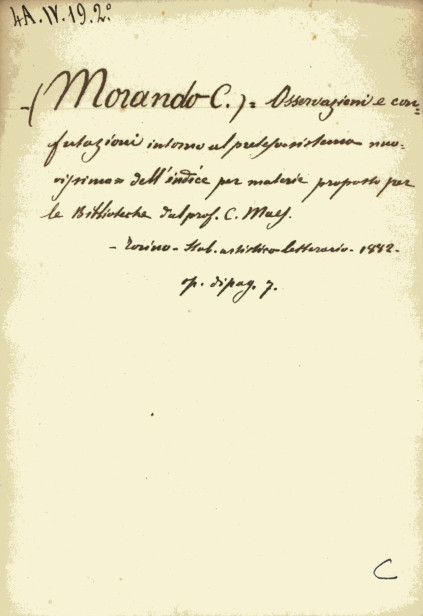 4A.IV.19.2º
-(Morando C.)= Osservazioni e con-
futazioni intorno al preteso sistema nuo-
vissimo dell'indice per materie proposto per
le Biblioteche dal prof. C. Maes.
- Torino - Stab. artistico-letterario - 1882 -
op. di pag. 7.
C